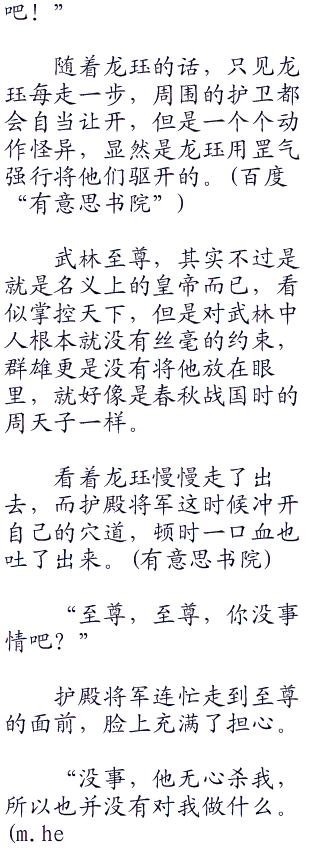 吧！”
随着龙珏的话，只见龙
珏每走一步，周围的护卫都
会自当让开，但是一个个动
作怪异，显然是龙珏用罡气
强行将他们驱开的。(百度
“有意思书院”)
武林至尊，其实不过是
就是名义上的皇帝而已，看
似掌控天下，但是对武林中
人根本就没有丝毫的约束，
群雄更是没有将他放在眼
里，就好像是春秋战国时的
周天子一样。
看着龙珏慢慢走了出
去，而护殿将军这时候冲开
自己的穴道，顿时一口血也
吐了出来。(有意思书院)
“至尊，至尊，你没事
情吧？”
护殿将军连忙走到至尊
的面前，脸上充满了担心。
“没事，他无心杀我，
所以也并没有对我做什么。
(m.he